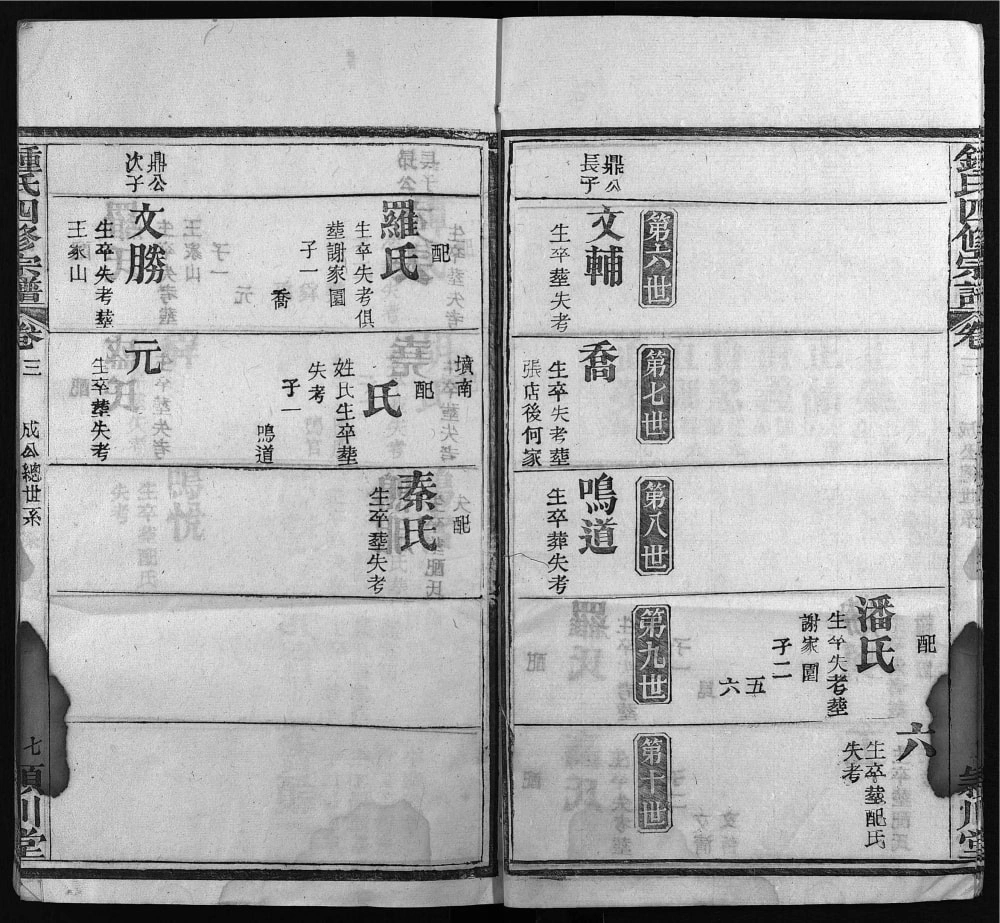 鍾氏四修宗譜
卷
配
潘氏
生卒失考塟
謝家園
子二
五
六
六
生卒塟配氏
失考
第六世
第七世
第八世
第九世
第十世
鼎公
長子
文輔
生卒失考
喬
生卒失考塟
張店後何家
鳴道
生卒葬失考
墳南
配
羅氏
生卒失考俱
塟謝家園
子一
喬
配
氏
姓氏生卒塟
失考
子一
鳴道
配
秦氏
生卒塟失考
鼎公
次子
文勝
生卒失考塟
王家山
元
生卒塟失考
鍾氏四修宗譜
卷三
成公總世系
七
潁川堂